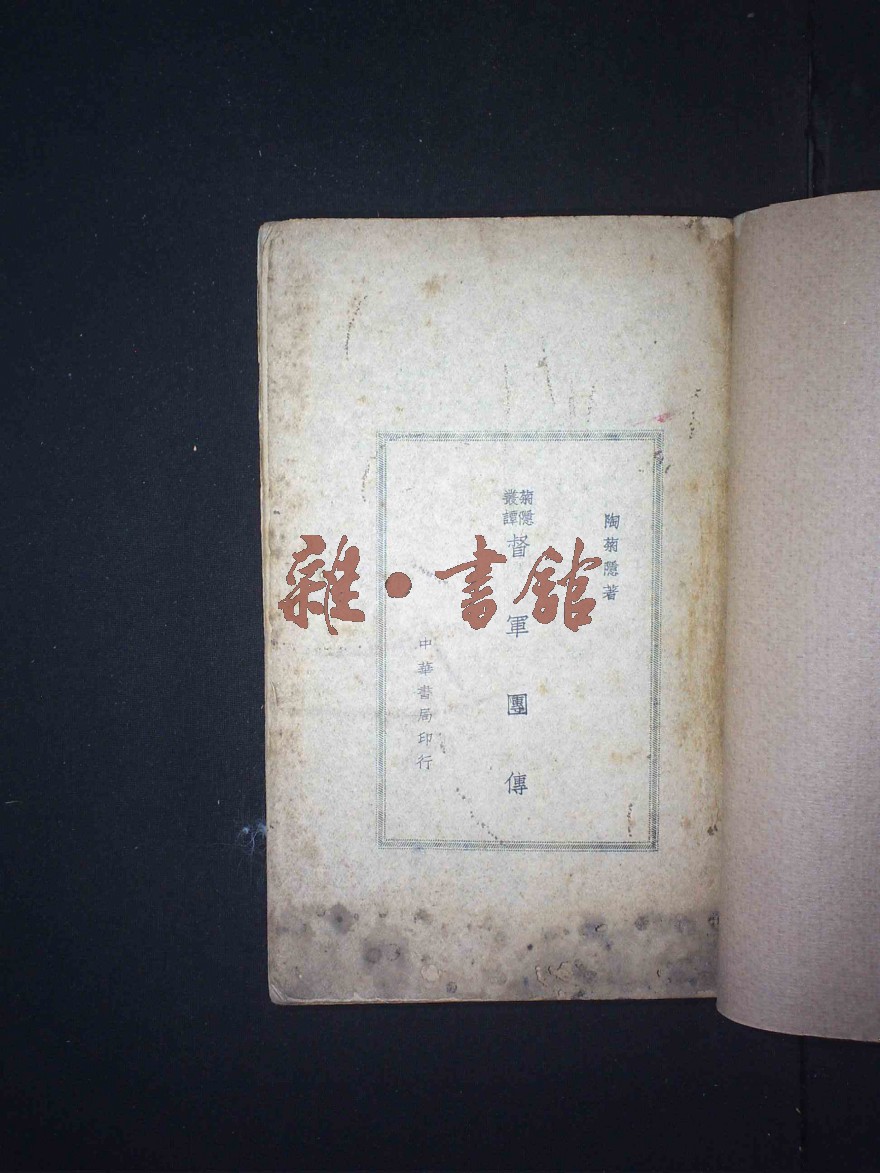 陶菊隱著
菊隱
叢譚
督軍團傳
中華書局印行
雜·書館